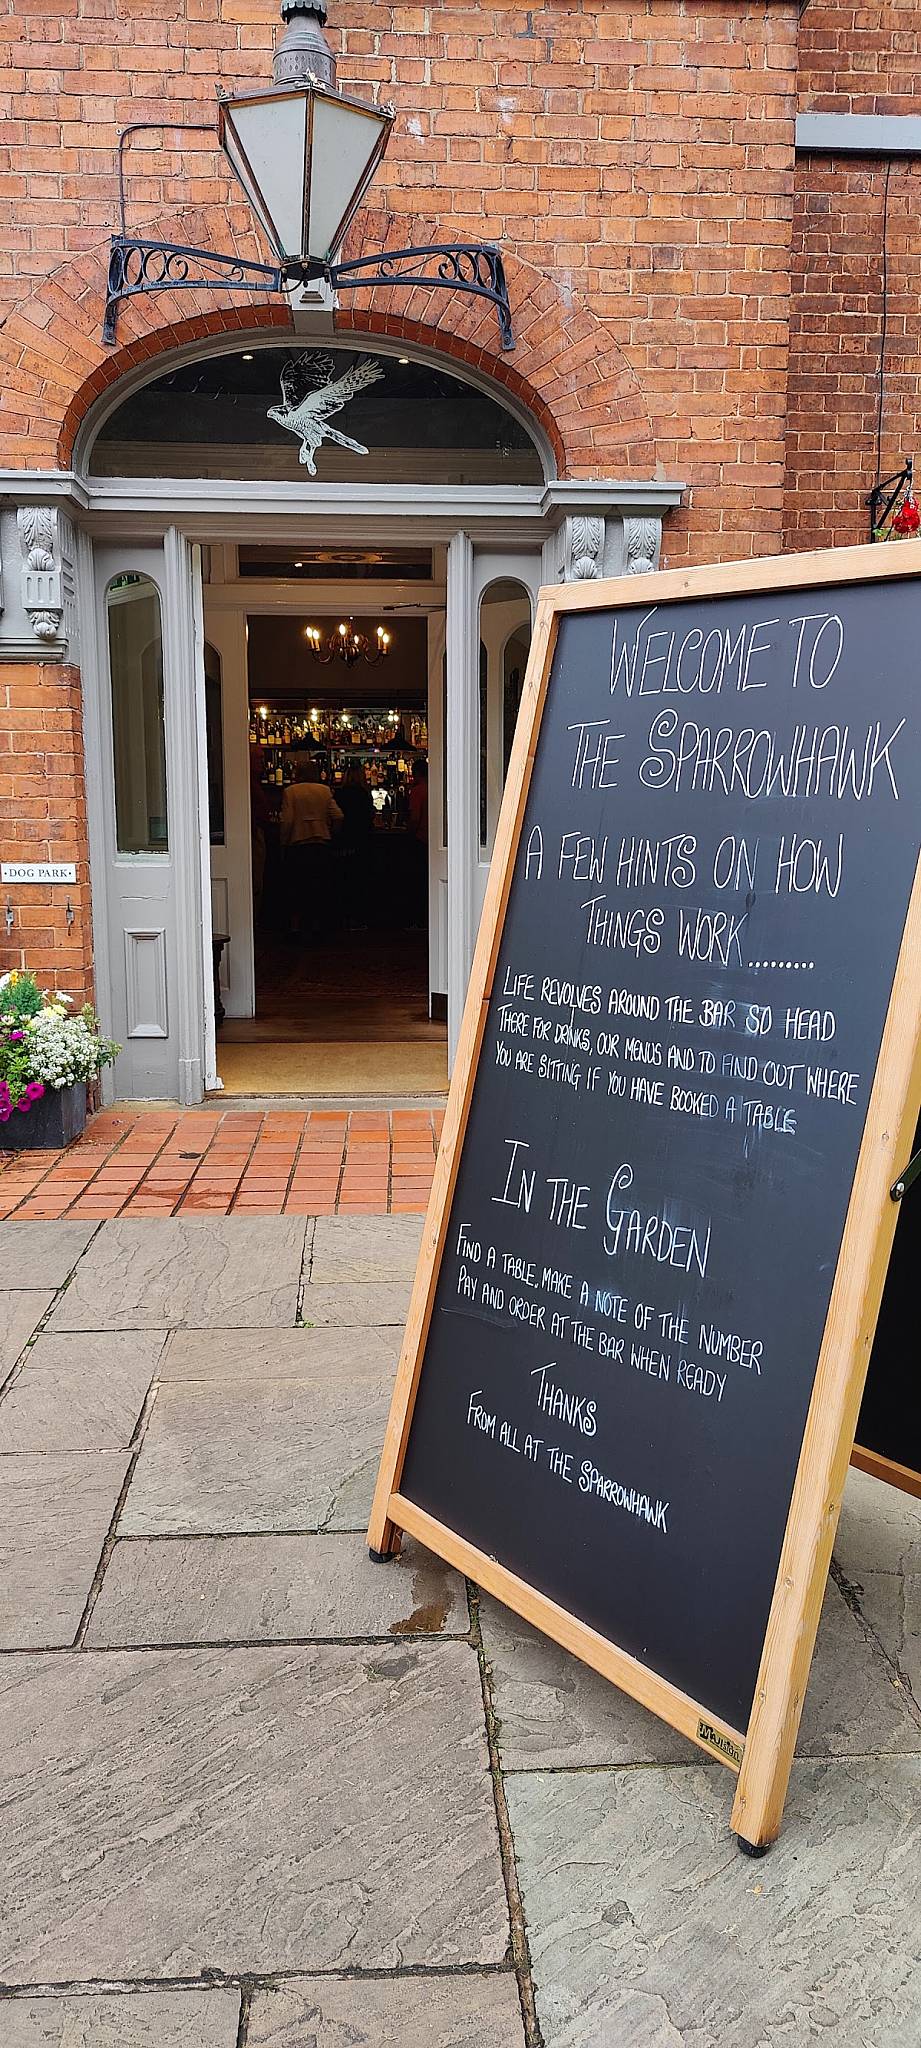 ·DOG PARK·
WELCOME TO
THE SPARROWHAWK
A FEW HINTS ON HOW
THINGS WORK.........
LIFE REVOLVES AROUND THE BAR SO HEAD
THERE FOR DRINKS, OUR MENUS AND TO FIND OUT WHERE
YOU ARE SITTING IF YOU HAVE BOOKED A TABLE
IN THE GARDEN
FIND A TABLE. MAKE A NOTE OF THE NUMBER
PAY AND ORDER AT THE BAR WHEN READY
THANKS
FROM ALL AT THE SPARROWHAWK